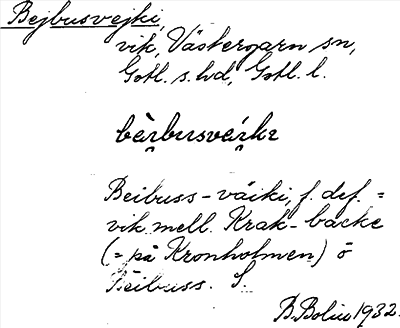 Bejbusvejki,
vik, Västergarn sn,
Gotl. s. hd, Gotl. l.
bèi̯busvái̯kɩ
Beibuss-väiki, f. def. =
vik mell. Krak-backe
(= på Kronholmen) ö
Beibuss. S.
B. Bolin 1932.